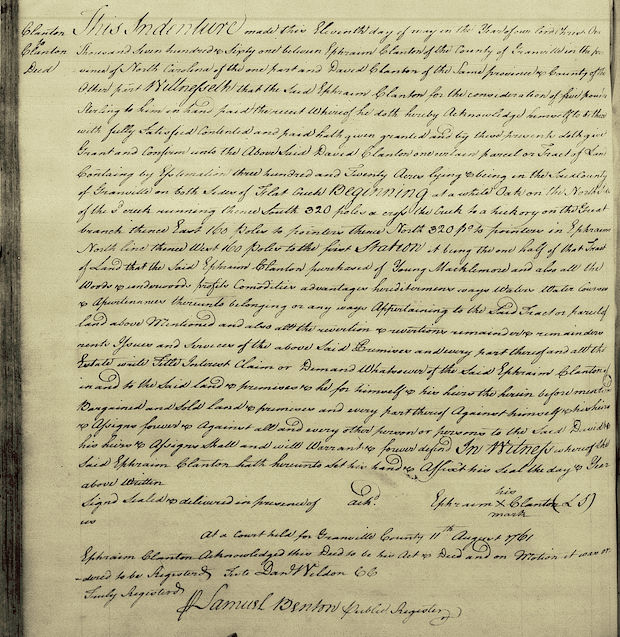 Clanton
to
Clanton
Deed
This Indenture made this Eleventh day of may in the Year of our lord Christ One
thousand Seven hundred & Sixty one between Ephraim Clanton of the County of Granville in the pro
vence of North Carolina of the one part and David Clanton of the Same province & County of the
Other part Witnesseth that the Said Ephraim Clanton for the consideration of five pounds
Sterling to him in hand paid the receit Whereof he doth hereby Acknowledge himself to be there
with fully Satisfied Contented and paid hath given granted and by these presents doth give
Grant and Conferm unto the Above Said David Clanton one certain parcel or Tract of Lan
Containg by Estemation three hundred and Twenty Acres lying & being in the Said County
of Granville on both Sides of Flat Creek Beginning at a white Oak on the North Side
of the Sd creek running thence South 320 poles a cross the Creek to a hickory on the Great
branch thence East 160 Poles to pointers thence North 320 Po to pointers in Ephraim
North line thence West 160 Poles to the first Station it being the one half of that Tract
of Land that the Said Ephraim Clanton purchased of Young Macklemore and also all the
Woods & underwoods profits Comodities advantages heriditermens ways Waters Water Courses
& Apurtenances thereunto belonging or any ways Appertaining to the Said Tract or parcel of
land above Mentioned and also all the revertion & revertions remainder & remainders
rents Issues and Services of the above Said Premises and every part thereof and all the
Estate write Title Interest Claim or Demand Whatsoever of the Said Ephraim Clanton of
in and to the Said land & premises & he for himself & his heirs the herein before mentiond
Bargained and Sold land & premises and every part thereof Against himself & his heirs
& Assigns forever & Against all and every other person or persons to the Said David &
his heirs & Assigns Shall and will Warrant & forever defend In Witness whereof the
Said Ephraim Clanton hath hereunto set his hand & Affixt his Seal the day & Year
above written
Signd Sealed & delivered in presence of ackd. Ephraim his X mark Clanton (L S)
us
At a Court held for Granville County 11th August 1761
Ephraim Clanton Acknowledged this Deed to be his Act & Deed and on Motion it was or
-dered to be Registerd Teste Danl Weldon CC
Truly Registerd
Samuel Benton Public Register